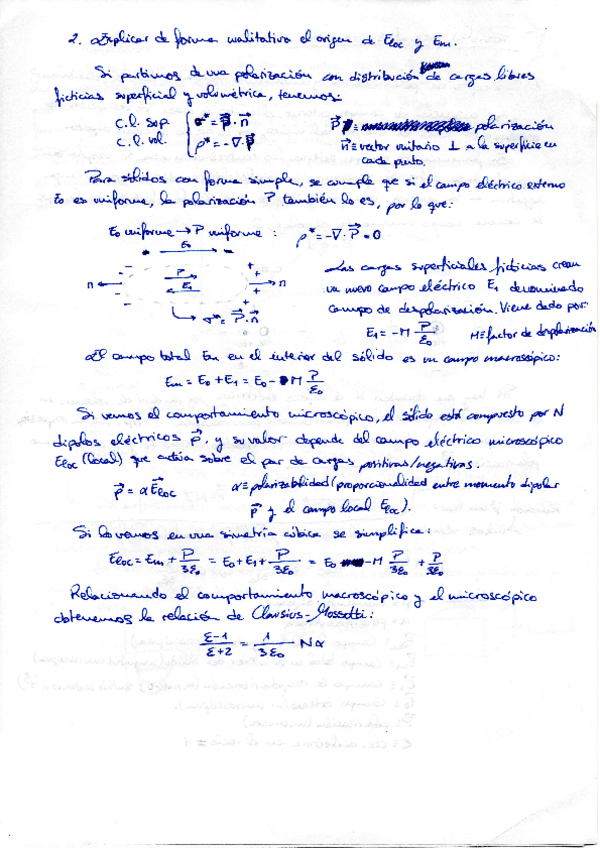 2. Explicar de forma cualitativa el origen de Eloc y Em.
Si partimos de una polarización con distribución de cargas libres
ficticias superficial y volumétrica, tenemos:
c.l. sup. { σ* = P⃗ · n⃗
c.l. vol. ρ* = -∇·P⃗
P⃗ ≡ polarización
n⃗ ≡ vector unitario ⊥ a la superficie en
cada punto.
Para sólidos con forma simple, se cumple que si el campo eléctrico externo
E₀ es uniforme, la polarización P también lo es, por lo que:
E₀ uniforme → P uniforme : ρ* = -∇·P⃗ = 0
E₀
n - - - P E₁ + + + n
σ* = P⃗ · n⃗
Las cargas superficiales ficticias crean
un nuevo campo eléctrico E₁ denominado
campo de despolarización. Viene dado por:
E₁ = -M P/ε₀ M ≡ factor de despolarización
El campo total Em en el interior del sólido es un campo macroscópico:
Em = E₀ + E₁ = E₀ - M P/ε₀
Si vemos el comportamiento microscópico, el sólido está compuesto por N
dipolos eléctricos p⃗, y su valor depende del campo eléctrico microscópico
Eloc (local) que actúa sobre el par de cargas positivas/negativas.
p⃗ = α E⃗loc α ≡ polarizabilidad (proporcionalidad entre momento dipolar
p⃗ y el campo local Eloc).
Si lo vemos en una simetría cúbica se simplifica:
Eloc = Em + P/3ε₀ = E₀ + E₁ + P/3ε₀ = E₀ - M P/3ε₀ + P/3ε₀
Relacionando el comportamiento macroscópico y el microscópico
obtenemos la relación de Clausius-Mossotti:
ε-1/ε+2 = 1/3ε₀ Nα